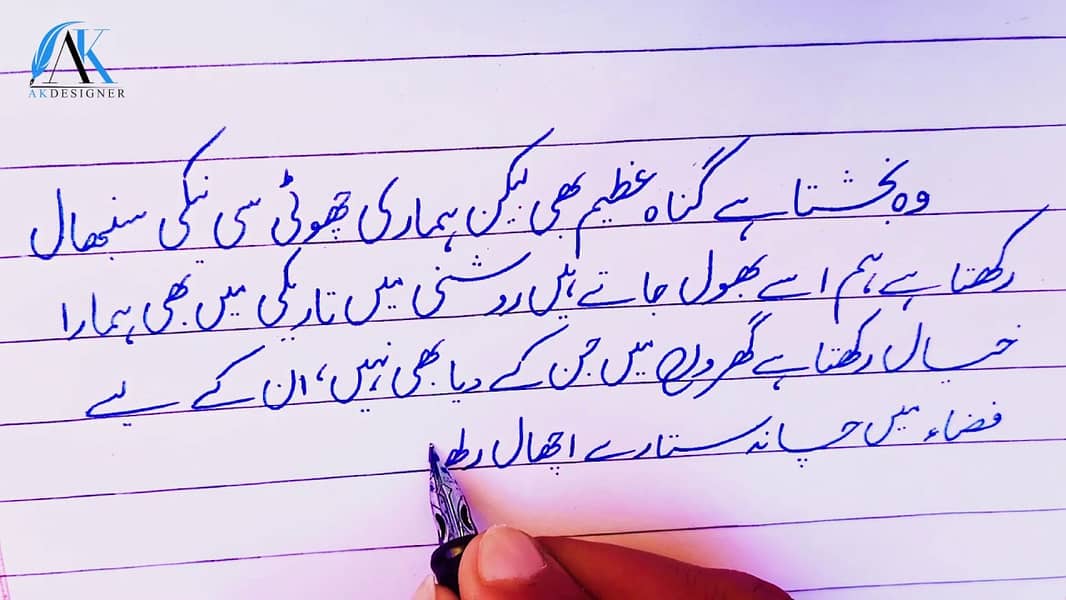 AK
AKDESIGNER
وہ بخشتا ہے گناہ عظیم بھی لیکن ہماری چھوٹی سی نیکی سنبھال
رکھتا ہے ہم اسے بھول جاتے ہیں روشنی میں تاریکی میں بھی ہمارا
خیال رکھتا ہے گھروں میں جن کے دیا بھی نہیں، ان کے لیے
فضاء میں چاند ستارے اچھال